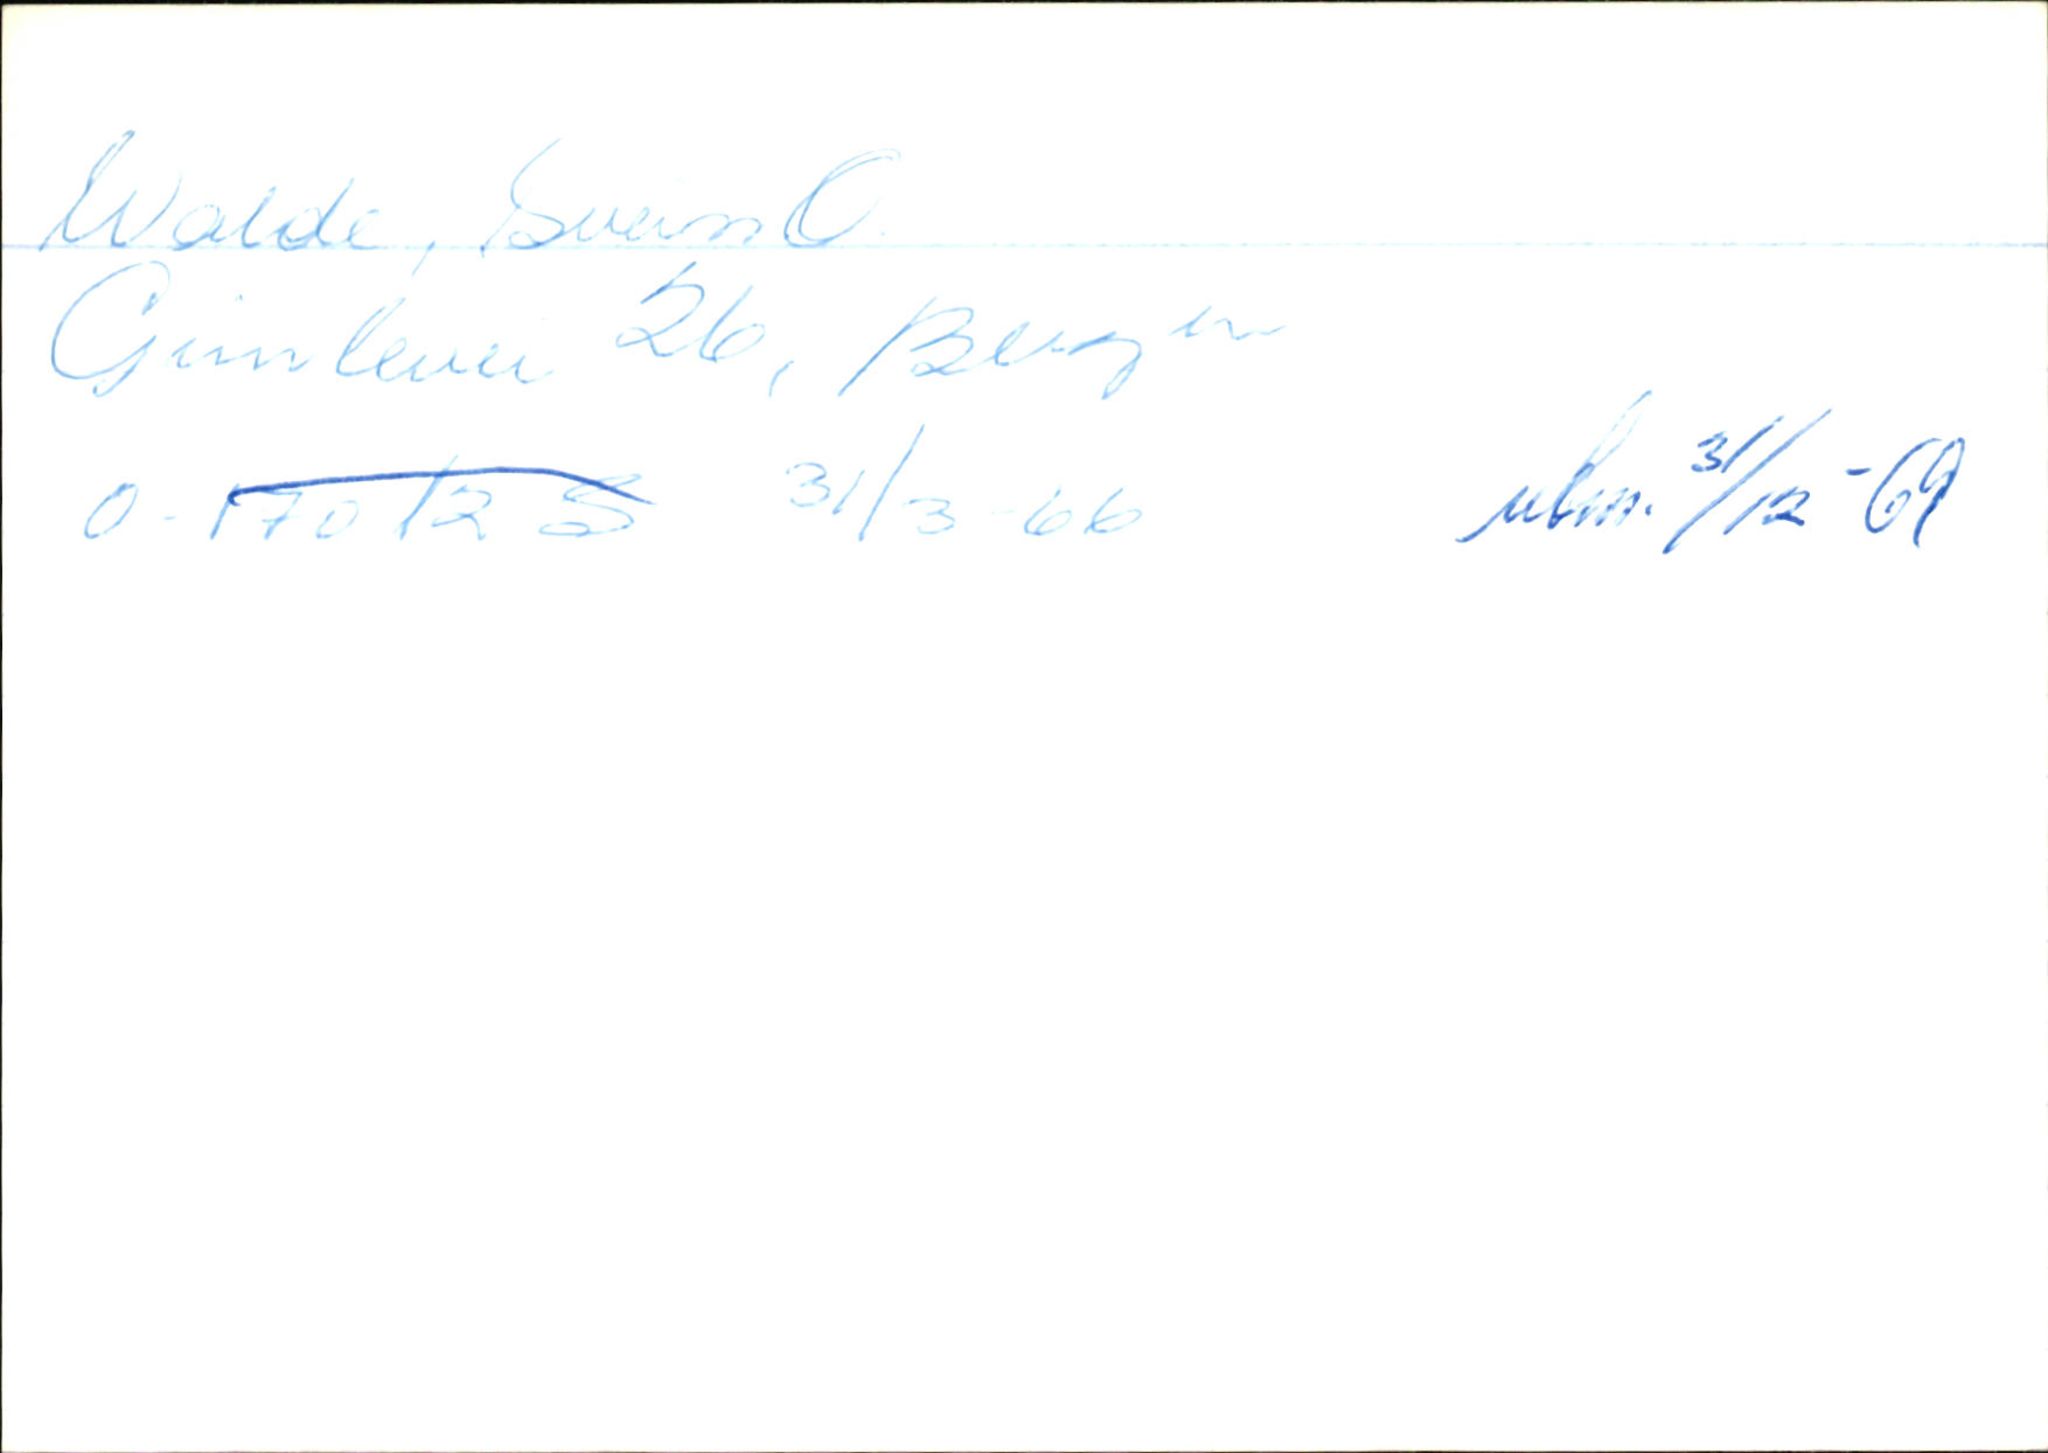 Walde, Svein O.
Gimlevei 26, Bergen
O-17012 S 31/3-66 31/12-69